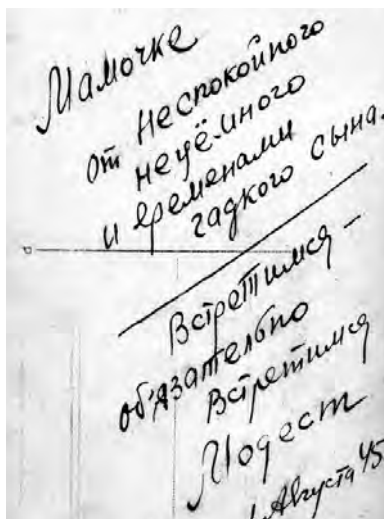 Мамочке
от неспокойного
неуёмного
и временами
гадкого сына.
Встретимся –
об'язательно
Встретимся
Модест
Августа 45